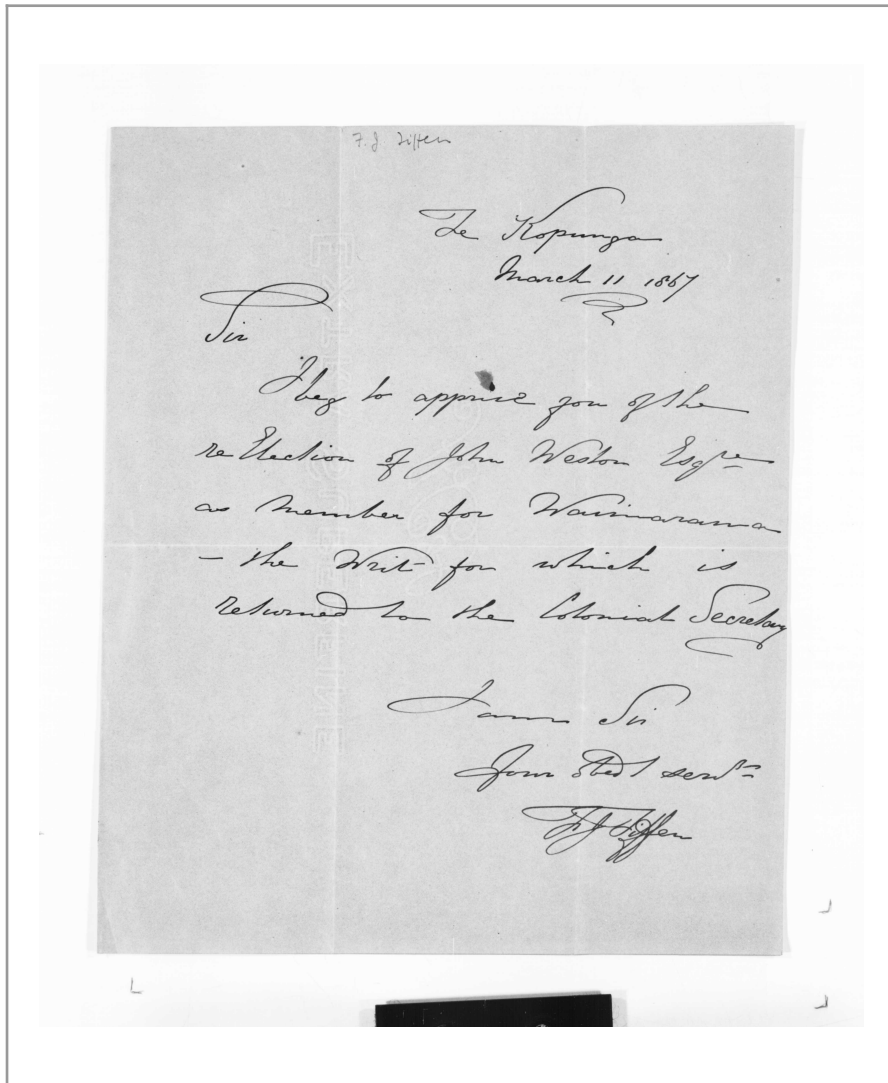 F. J Tiffen
Te Kopunga
March 11 1867
Sir
I beg to apprise you of the
re Election of John Weston Esqre
as member for Waimarama
- the Writ for which is
returned to the Colonial Secretary
I am Sir
Your Obedt servt
F J Tiffen